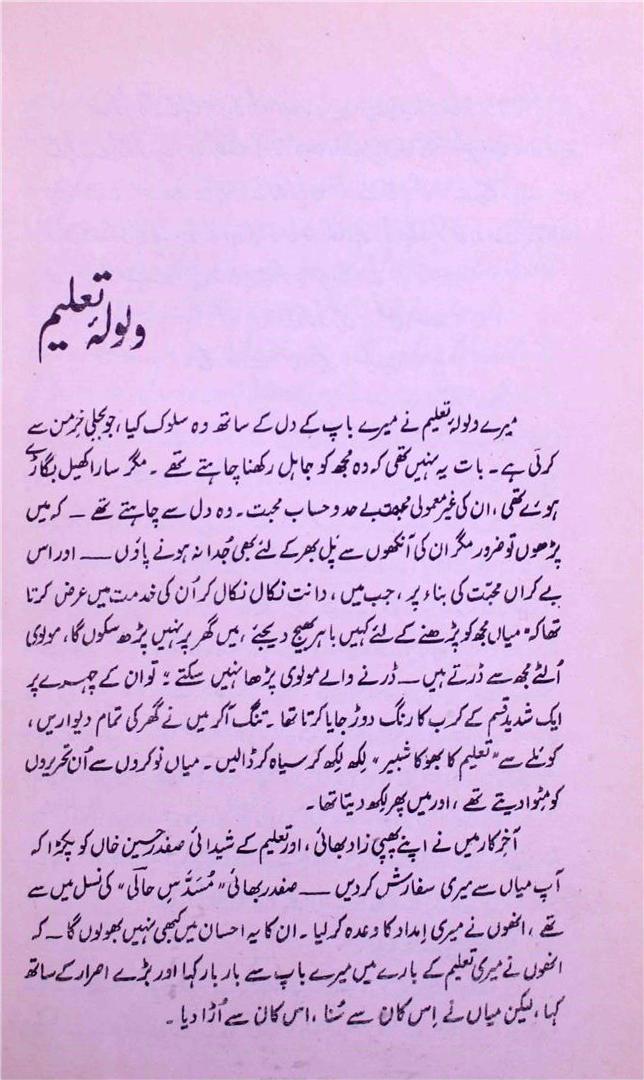 ولولۂ تعلیم
میرے ولولۂ تعلیم نے میرے باپ کے دل کے ساتھ وہ سلوک کیا، جو بجلی خرمن سے
کرتی ہے۔ بات یہ نہیں تھی کہ وہ مجھ کو جاہل رکھنا چاہتے تھے۔ مگر سارا کھیل بگاڑے
ہوئے تھی، ان کی غیر معمولی محبت بے حد و حساب محبت۔ وہ دل سے چاہتے تھے — کہ میں
پڑھوں تو ضرور مگر ان کی آنکھوں سے پَل بھر کے لئے بھی جُدا نہ ہونے پاؤں —— اور اس
بے کراں محبّت کی بناء پر، جب میں، دانت نکال نکال کر اُن کی خدمت میں عرض کرتا
تھا کہ "میاں مجھ کو پڑھنے کے لئے کہیں باہر بھیج دیجئے، میں گھر پر نہیں پڑھ سکوں گا، مولوی
اُلٹے مجھ سے ڈرتے ہیں — ڈرنے والے مولوی پڑھا نہیں سکتے" تو ان کے چہرے پر
ایک شدید قسم کے کرب کا رنگ دوڑ جایا کرتا تھا۔ تنگ آکر میں نے گھر کی تمام دیواریں،
کوئلے سے "تعلیم کا بھوکا شبیر" لکھ لکھ کر سیاہ کر ڈالیں۔ میاں نوکروں سے اُن تحریروں
کو مٹوا دیتے تھے، اور میں پھر لکھ دیتا تھا۔
آخر کار میں نے اپنے پھپی زاد بھائی، اور تعلیم کے شیدائی صفدر حسین خاں کو پکڑا کہ
آپ میاں سے میری سفارش کر دیں —— صفدر بھائی "مُسَدَّسِ حالی" کی نسل میں سے
تھے، انھوں نے میری اِمداد کا وعدہ کر لیا۔ ان کا یہ احسان میں کبھی نہیں بھولوں گا — کہ
انھوں نے میری تعلیم کے بارے میں میرے باپ سے بار بار کہا اور بڑے اصرار کے ساتھ
کہا، لیکن میاں نے اِس کان سے سُنا، اس کان سے اُڑا دیا۔